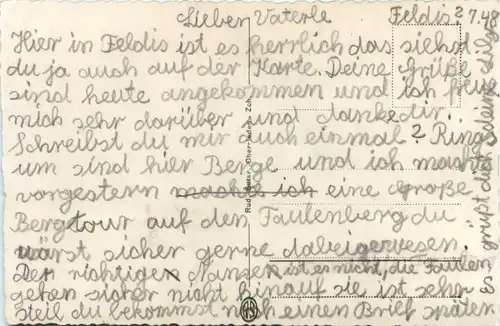 Lieber Vaterle Feldis 2 7.48
Hier in Feldis ist es herrlich das siehst
du ja auch auf der Karte. Deine Grüße
sind heute angekommen und ich freu
mich sehr darüber und danke dir.
Schreibst du mir auch einmal? Rings
um sind hier Berge und ich machte
vorgestern machte ich eine große
Bergtour auf den Faulenberg du
wärst sicher gerne dabeigewesen.
Der richtige Namen ist es nicht, die Faulen
gehen sicher nicht hinauf sie ist sehr
steil du bekommst noch einen Brief später
Es grüßt dich deine